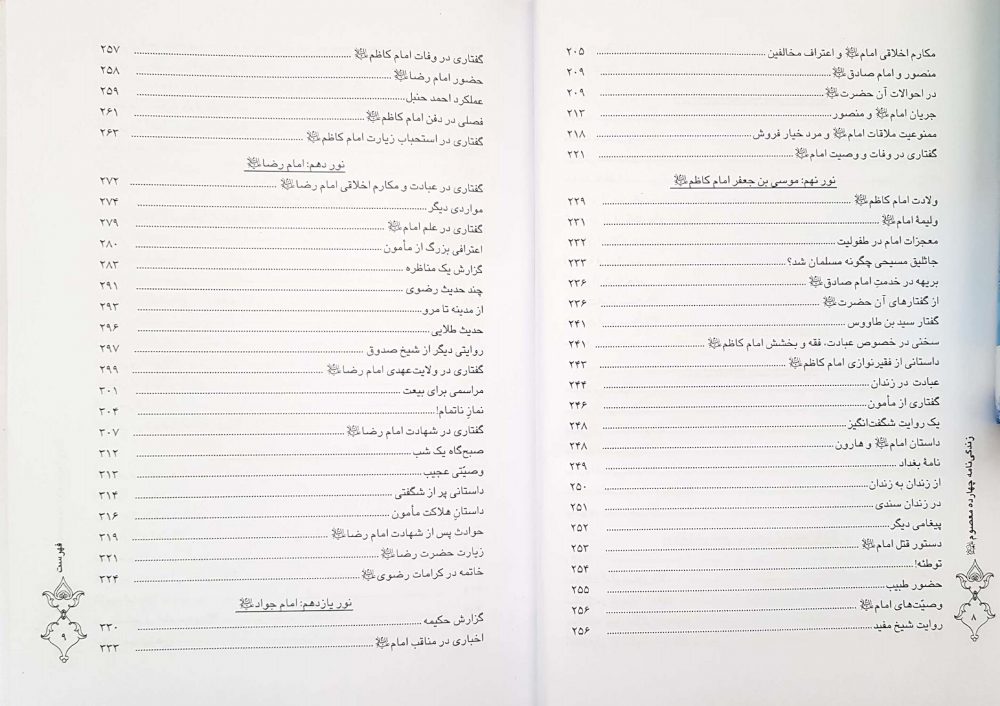 مکارم اخلاقی امام علیه‌السلام و اعتراف مخالفین ۲۰۵
منصور و امام صادق علیه‌السلام ۲۰۹
در احوالات آن حضرت علیه‌السلام ۲۰۹
جریان امام علیه‌السلام و منصور ۲۱۳
ممنوعیت ملاقات امام علیه‌السلام و مرد خیار فروش ۲۱۸
گفتاری در وفات و وصیت امام علیه‌السلام ۲۲۱
نور نهم: موسی بن جعفر امام کاظم علیه‌السلام
ولادت امام کاظم علیه‌السلام ۲۲۹
ولیمۀ امام علیه‌السلام ۲۳۱
معجزات امام در طفولیت ۲۳۲
جاثلیق مسیحی چگونه مسلمان شد؟ ۲۳۳
بریهه در خدمتِ امام صادق علیه‌السلام ۲۳۶
از گفتارهای آن حضرت علیه‌السلام ۲۳۶
گفتار سید بن طاووس ۲۴۱
سخنی در خصوص عبادت، فقه و بخشش امام کاظم علیه‌السلام ۲۴۱
داستانی از فقیرنوازی امام کاظم علیه‌السلام ۲۴۳
عبادت در زندان ۲۴۴
گفتاری از مأمون ۲۴۶
یک روایت شگفت‌انگیز ۲۴۸
داستان امام علیه‌السلام و هارون ۲۴۸
نامۀ بغداد ۲۴۹
از زندان به زندان ۲۵۰
در زندان سندی ۲۵۱
پیغامی دیگر ۲۵۲
دستور قتل امام علیه‌السلام ۲۵۳
توطئه! ۲۵۴
حضور طبیب ۲۵۵
وصیّت‌های امام علیه‌السلام ۲۵۶
روایت شیخ مفید ۲۵۶
زندگی‌نامه چهارده معصوم علیهم‌السلام
۸
گفتاری در وفات امام کاظم علیه‌السلام ۲۵۷
حضور امام رضا علیه‌السلام ۲۵۸
عملکرد احمد حنبل ۲۵۹
فصلی در دفن امام کاظم علیه‌السلام ۲۶۱
گفتاری در استحباب زیارت امام کاظم علیه‌السلام ۲۶۳
نور دهم: امام رضا علیه‌السلام
گفتاری در عبادت و مکارم اخلاقی امام رضا علیه‌السلام ۲۷۲
مواردی دیگر ۲۷۴
گفتاری در علم امام علیه‌السلام ۲۷۹
اعترافی بزرگ از مأمون ۲۸۰
گزارش یک مناظره ۲۸۳
چند حدیث رضوی ۲۹۱
از مدینه تا مرو ۲۹۳
حدیث طلایی ۲۹۶
روایتی دیگر از شیخ صدوق ۲۹۷
گفتاری در ولایت‌عهدی امام رضا علیه‌السلام ۲۹۹
مراسمی برای بیعت ۳۰۱
نمازِ ناتمام! ۳۰۴
گفتاری در شهادت امام رضا علیه‌السلام ۳۰۷
صبح‌گاه یک شب ۳۱۲
وصیّتی عجیب ۳۱۳
داستانی پر از شگفتی ۳۱۴
داستانِ هلاکت مأمون ۳۱۶
حوادث پس از شهادت امام رضا علیه‌السلام ۳۱۹
زیارت حضرت رضا علیه‌السلام ۳۲۱
خاتمه در کرامات رضوی علیه‌السلام ۳۲۴
نور یازدهم: امام جواد علیه‌السلام
گزارش حکیمه ۳۳۰
اخباری در مناقب امام علیه‌السلام ۳۳۳
فهرست
۹